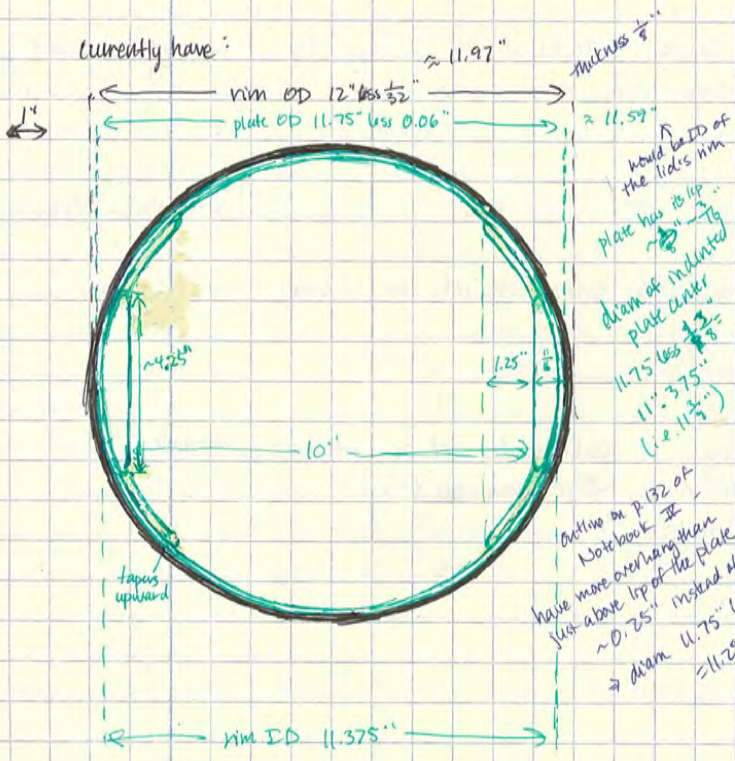 currently have:
≈ 11.97"
thickness 1/8"
1"
rim OD 12" less 1/32"
plate OD 11.75" less 0.06"
≈ 11.59"
would be ID of
the lid's rim
plate has its lip
~ 3/16
diam of indented
plate center
11.75 less 3/8" =
11".375"
(i.e. 11 3/8")
~4.25"
1.25"
10"
tapers
upward
outline on p.132 of
Notebook IV -
have more overhang than
just above lip of the plate
~0.25" instead of
⇒ diam 11.75"
=11.25
rim ID 11.375"